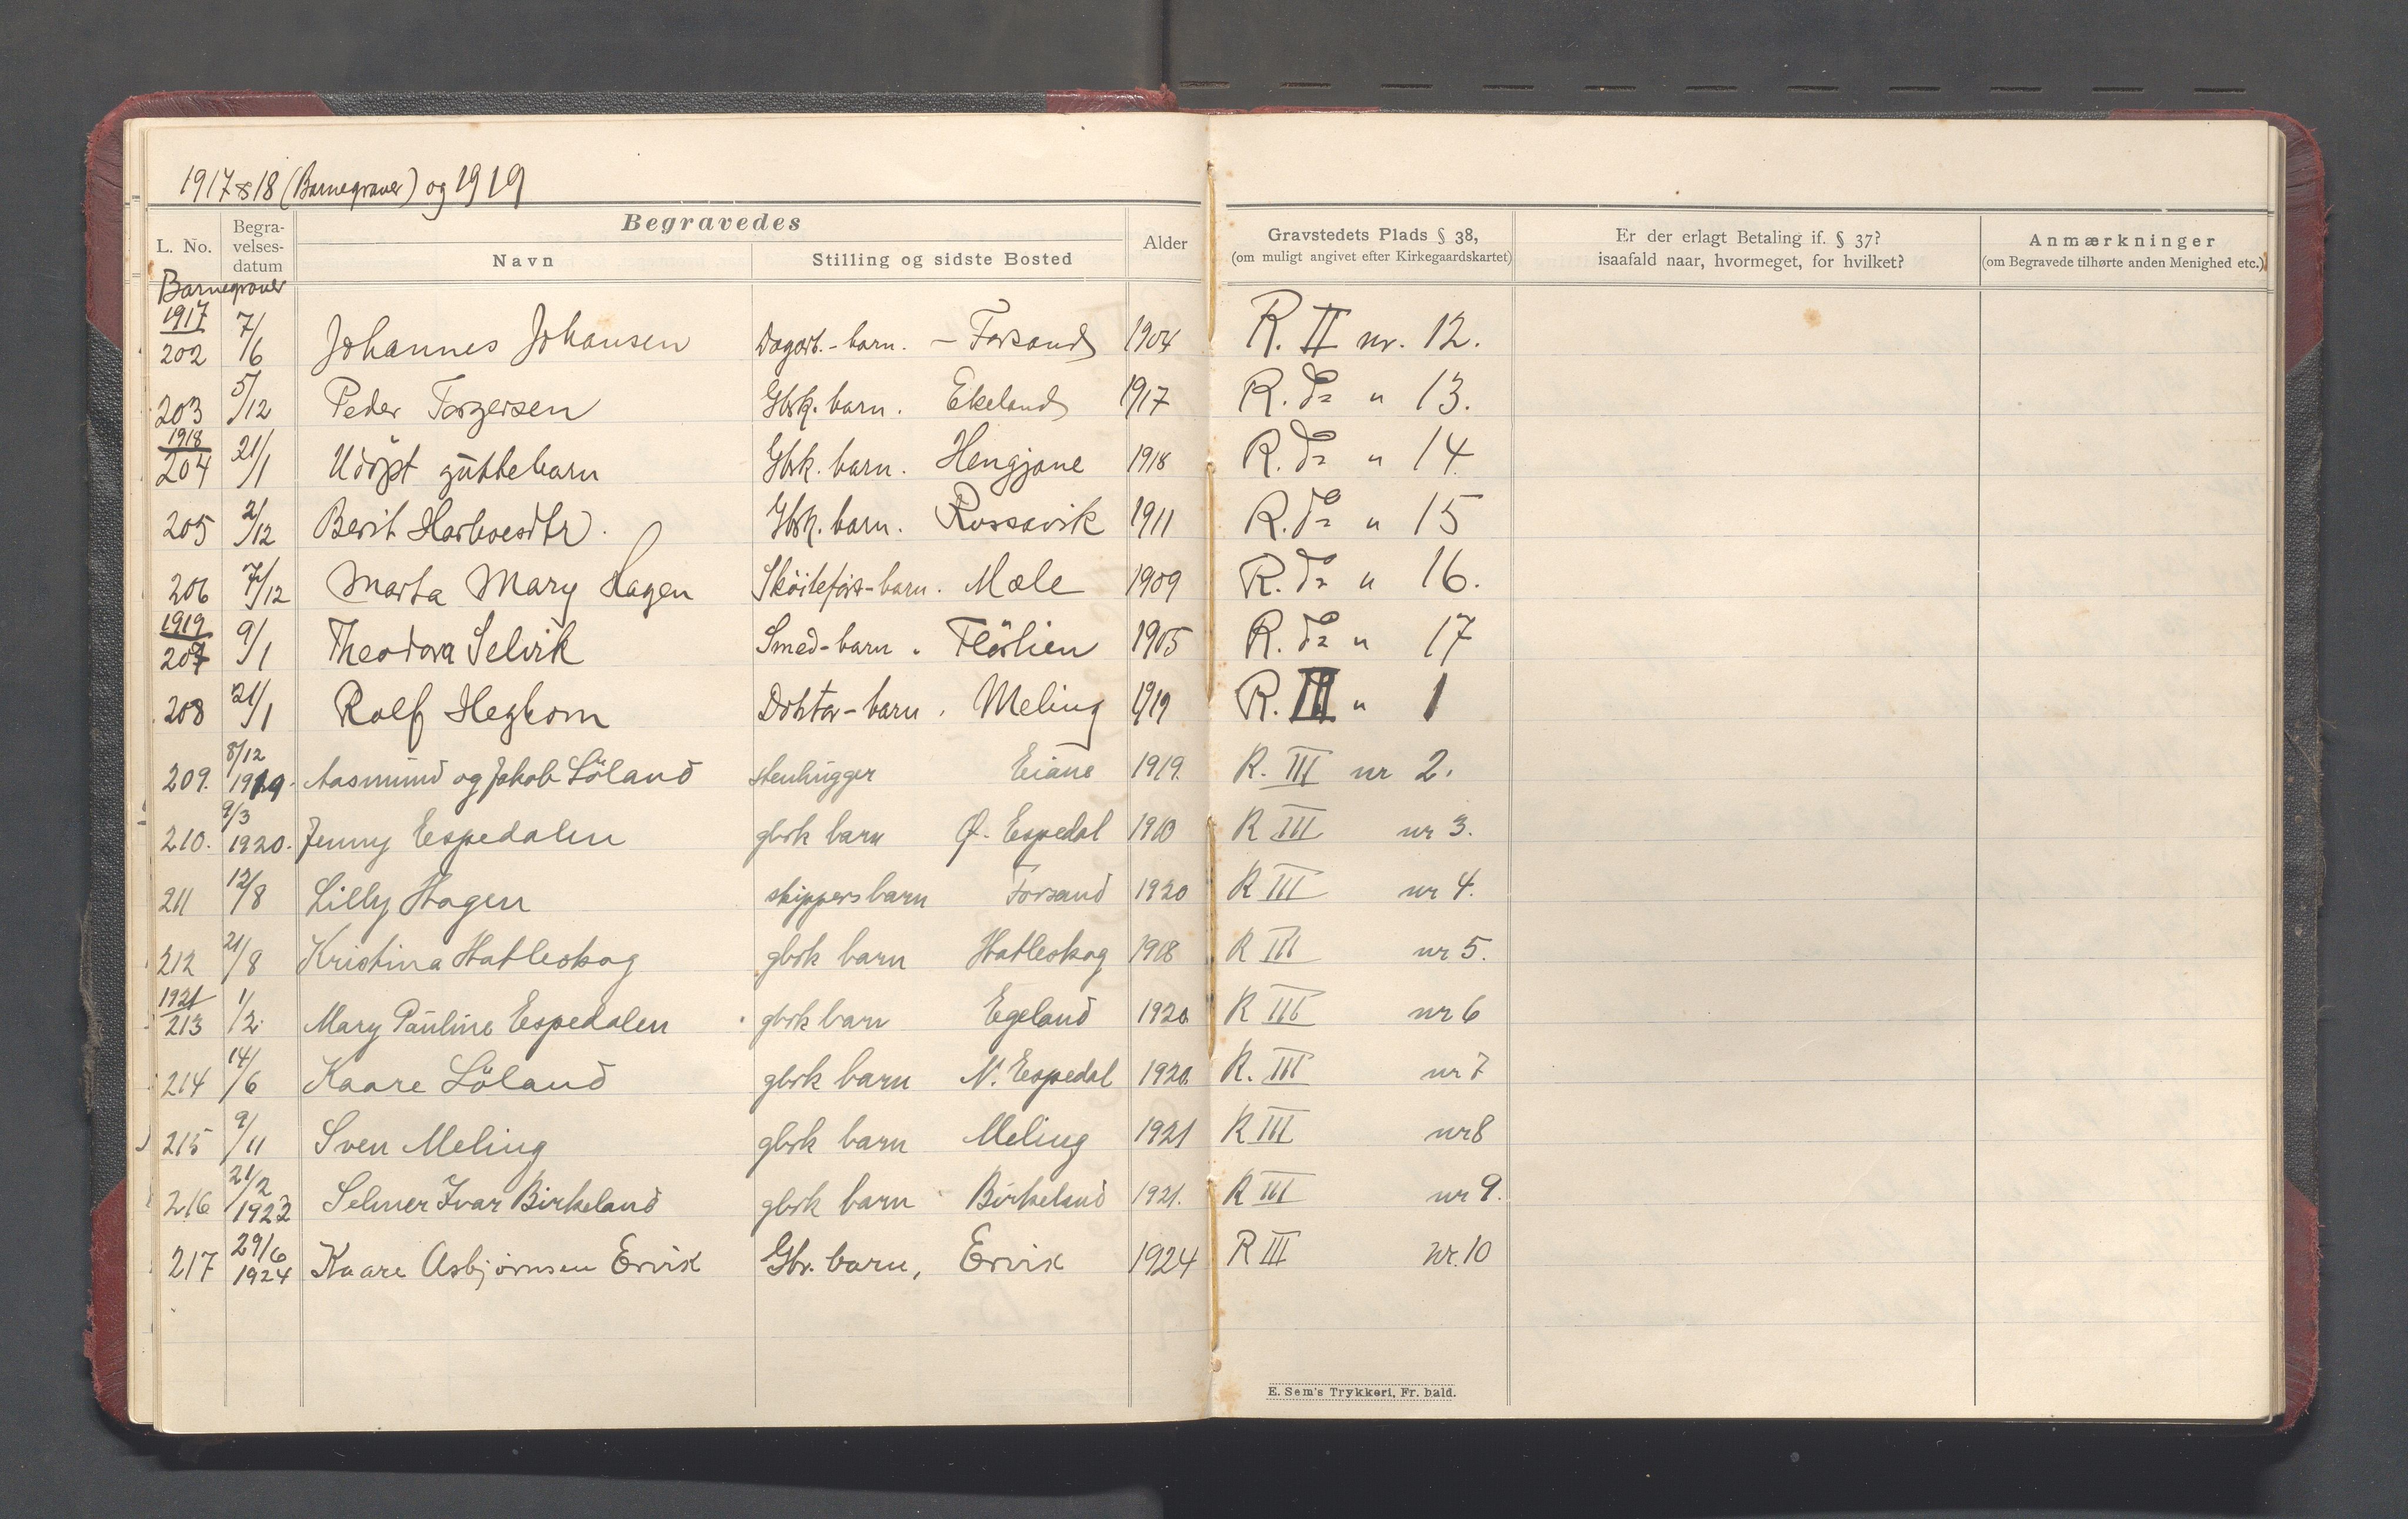 1917 & 18 (Barnegraver) og 1919
L. No. Begra-velses-datum Begravedes Alder Gravstedets Plads § 38, Er der erlagt Betaling if. § 37? Anmærkninger
Navn Stilling og sidste Bosted (om muligt angivet efter Kirkegaardskartet) isaafald naar, hvormeget, for hvilket? (om Begravede tilhørte anden Menighed etc.)
Barnegraver
1917
202 7/6 Johannes Johansen Dagarb.-barn. - Forsand 1904 R. II nr. 12.
203 5/12 Peder Torgersen Gbrk. barn. Ekeland 1917 R. do " 13.
1918
204 21/1 Udøpt guttebarn Gbrk. barn. Hengjane 1918 R. do " 14.
205 2/12 Berit Hoveesdtr. Gbrk. barn. Rossavik 1911 R. do " 15
206 7/12 Marta Mary Hagen barn. Mæle 1909 R. do " 16.
1919
207 9/1 Theodora Selvik Smed-barn. Flörlien 1905 R. do " 17
208 21/1 Rolf Hegbom Doktor-barn. Meling 1919 R. III " 1
209. 8/12 1919. Aasmund og Jakob Löland stenhugger Eiane 1919. R. III nr 2.
210. 9/3 1920. Jenny Espedalen gbrk barn Ø. Espedal 1910 R III nr 3.
211 12/8 Lilly Hagen skippers barn Forsand 1920 R III nr 4.
212 21/8 Kristina Hatleskog gbrk barn Hatleskog 1918 R III nr 5.
1921
213 1/2. Mary Pauline Espedalen gbrk barn Egeland 1920 R III nr 6
214 14/6 Kaare Löland gbrk barn N. Espedal 1920 R. III nr 7
215 9/11 Sven Meling gbrk barn Meling 1921 R III nr 8
216 21/2 1923 Selmer Ivar Birkeland gbrk barn Birkeland 1921. R III nr 9.
217 29/6 1924 Kaare Asbjörnsen Ervik Gbr. barn, Ervik 1924 R III nr. 10
E. Sem's Trykkeri, Fr. hald.